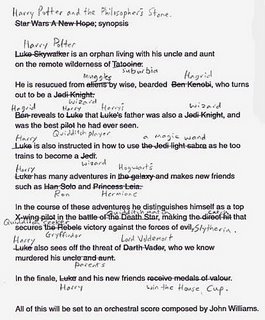 Harry Potter and the Philosopher's Stone.
Star Wars A New Hope; synopsis
Harry Potter
Luke Skywalker is an orphan living with his uncle and aunt
on the remote wilderness of Tatooine.
suburbia
muggles Hagrid
He is resucued from aliens by wise, bearded Ben Kenobi, who turns
out to be a Jedi Knight.
wizard
Hagrid Harry Harry's wizard
Ben reveals to Luke that Luke's father was also a Jedi Knight, and
was the best pilot he had ever seen.
Quidditch player
Harry a magic wand
Luke is also instructed in how to use the Jedi light sabre as he too
trains to become a Jedi.
wizard
Harry Hogwarts
Luke has many adventures in the galaxy and makes new friends
such as Han Solo and Princess Leia.
Ron Hermione
In the course of these adventures he distinguishes himself as a top
Quidditch match
X-wing pilot in the battle of the Death Star, making the direct hit that
Quidditch seeker catch
secures the Rebels victory against the forces of evil.
Gryffindor Slytherin.
Harry Lord Voldemort
Luke also sees off the threat of Darth Vader, who we know
murdered his uncle and aunt.
parents
In the finale, Luke and his new friends receive medals of valour.
Harry win the House Cup.
All of this will be set to an orchestral score composed by John Williams.